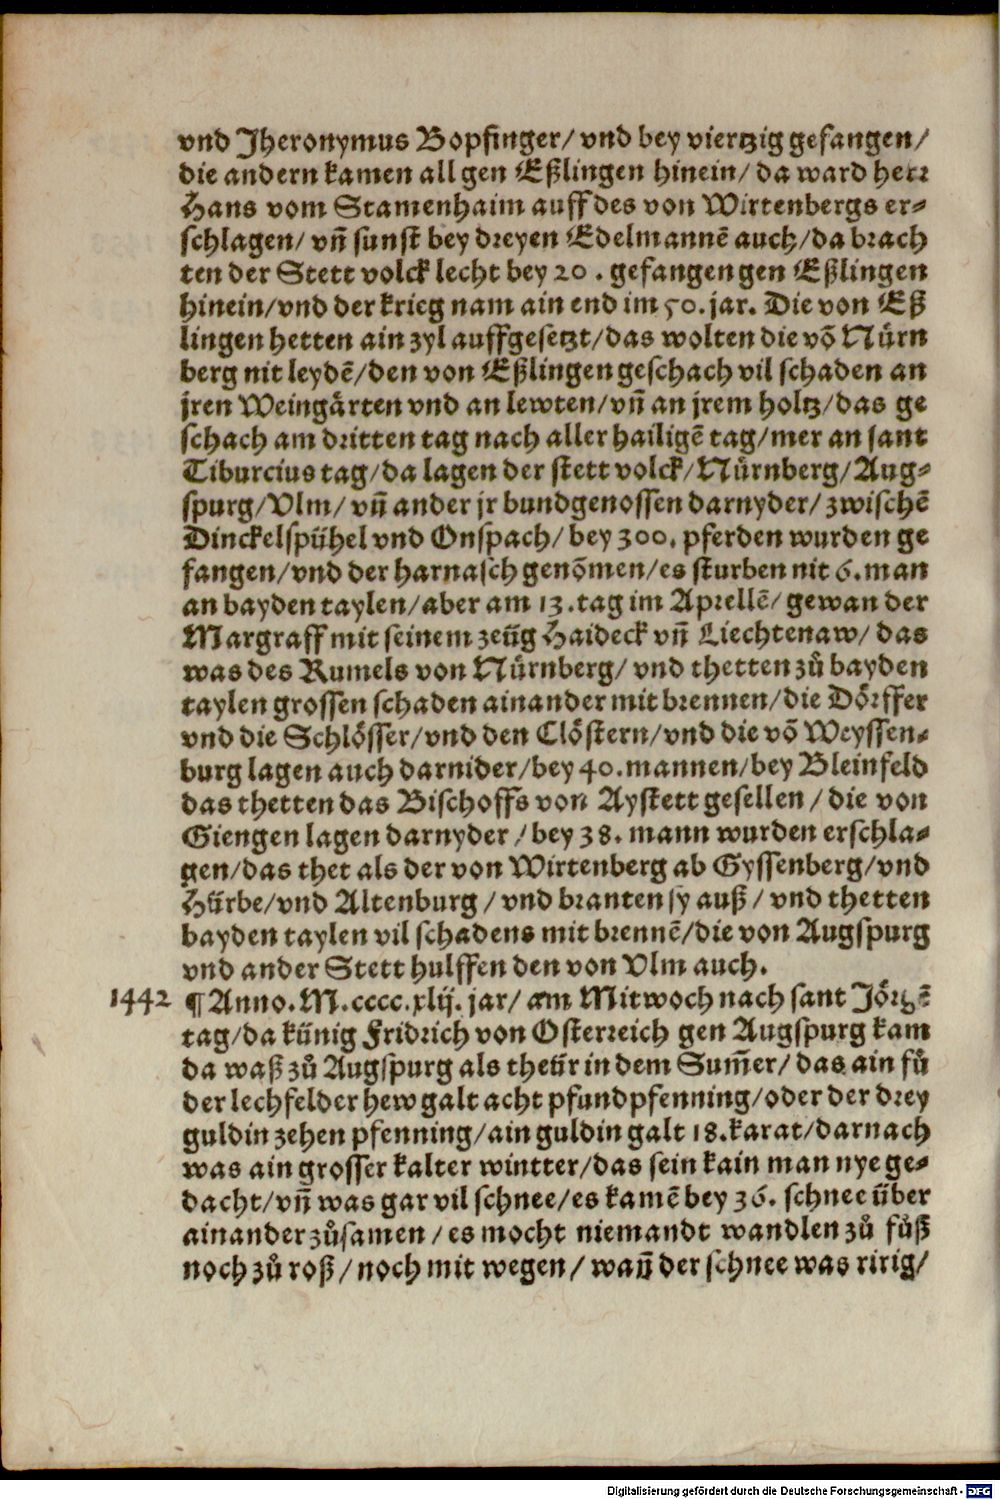 vnd Jheronymus Bopfinger/ vnd bey viertzig gefangen/
die andern kamen all gen Eßlingen hinein/ da ward herr
Hans vom Stamenhaim auff des von Wirtenbergs er⸗
schlagen/ vñ sunst bey dreyen Edelmannẽ auch/ da brach
ten der Stett volck lecht bey 20. gefangen gen Eßlingen
hinein/ vnd der krieg nam ain end im 50. jar. Die von Eß
lingen hetten ain zyl auffgesetzt/ das wolten die võ Nürn
berg nit leydẽ/ den von Eßlingen geschach vil schaden an
jren Weingärten vnd an lewten/ vñ an jrem holtz/ das ge
schach am dritten tag nach aller hailigẽ tag/ mer an sant
Tiburcius tag/ da lagen der stett volck/ Nürnberg/ Aug⸗
spurg/ Vlm/ vñ ander jr bundgenossen darnyder/ zwischẽ
Dinckelspühel vnd Onspach/ bey 300. pferden wurden ge
fangen/ vnd der harnasch genõmen/ es sturben nit 6. man
an bayden taylen/ aber am 13. tag im Aprellẽ/ gewan der
Margraff mit seinem zeüg Haideck vñ Liechtenaw/ das
was des Rumels von Nürnberg/ vnd thetten zů bayden
taylen grossen schaden ainander mit brennen/ die Dörffer
vnd die Schlösser/ vnd den Clöstern/ vnd die võ Weyssen⸗
burg lagen auch darnider/ bey 40. mannen/ bey Bleinfeld
das thetten das Bischoffs von Aystett gesellen/ die von
Giengen lagen darnyder/ bey 38. mann wurden erschla⸗
gen/ das thet als der von Wirtenberg ab Gyssenberg/ vnd
Hürbe/ vnd Altenburg/ vnd branten sy auß/ vnd thetten
bayden taylen vil schadens mit brennẽ/ die von Augspurg
vnd ander Stett hulffen den von Vlm auch.
1442 ¶ Anno. M. cccc. xlij. jar/ am Mitwoch nach sant Jörgẽ
tag/ da künig Fridrich von Osterreich gen Augspurg kam
da waß zů Augspurg als theür in dem Sum̃er/ das ain fů
der lechfelder hew galt acht pfund pfenning/ oder der drey
guldin zehen pfenning/ ain guldin galt 18. karat/ darnach
was ain grosser kalter wintter/ das sein kain man nye ge⸗
dacht/ vñ was gar vil schnee/ es kamẽ bey 36. schnee über
ainander zůsamen/ es mocht niemandt wandlen zů fůß
noch zů roß/ noch mit wegen/ wañ der schnee was ririg/
Digitalisierung gefördert durch die Deutsche Forschungsgemeinschaft - DFG